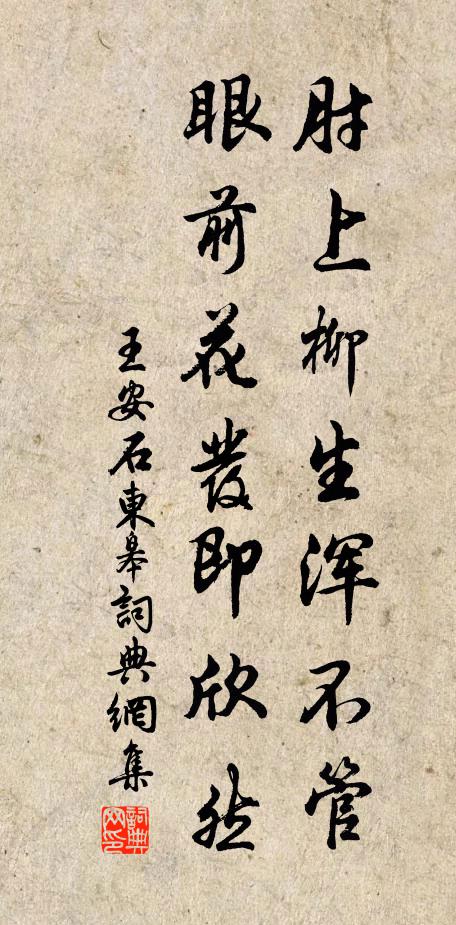 肘上柳生浑不管
眼前花發即欣然
王安石東皋詞典網集
詞典网印